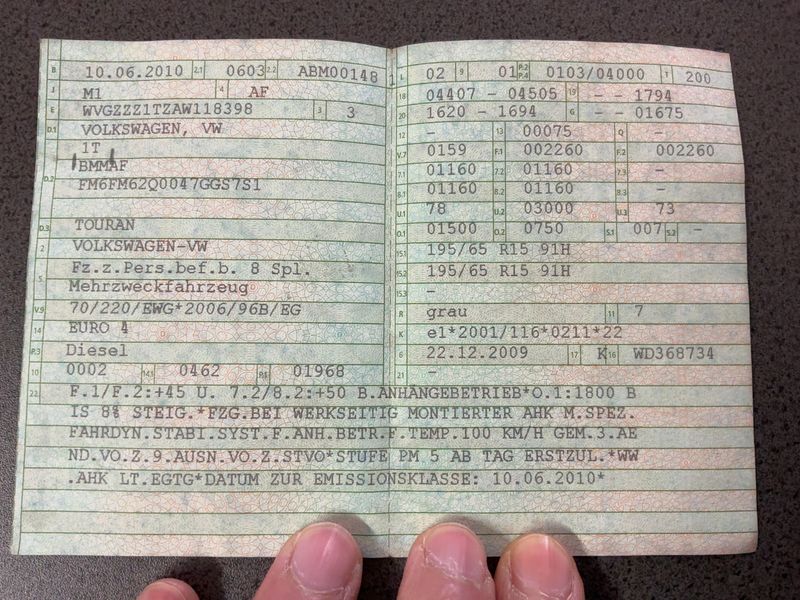 B 10.06.2010 2.1 0603 2.2 ABM00148 1
J M1 4 AF
E WVGZZZ1TZAW118398 3 3
D.1 VOLKSWAGEN, VW
1T
D.2 BMMAF
FM6FM62Q0047GGS7S1
D.3 TOURAN
2 VOLKSWAGEN-VW
5 Fz.z.Pers.bef.b. 8 Spl.
Mehrzweckfahrzeug
V.9 70/220/EWG*2006/96B/EG
14 EURO 4
P.3 Diesel
10 0002 14.1 0462 P.1 01968
L 02 9 01 P.2 P.4 0103/04000 T 200
18 04407 - 04505 19 - - 1794
20 1620 - 1694 G - - 01675
12 - 13 00075 Q -
V.7 0159 F.1 002260 F.2 002260
7.1 01160 7.2 01160 7.3 -
8.1 01160 8.2 01160 8.3 -
U.1 78 U.2 03000 U.3 73
O.1 01500 O.2 0750 S.1 007 S.2 -
15.1 195/65 R15 91H
15.2 195/65 R15 91H
15.3 -
R grau 11 7
K e1*2001/116*0211*22
6 22.12.2009 17 K 16 WD368734
21 -
22 F.1/F.2:+45 U. 7.2/8.2:+50 B.ANHÄNGEBETRIEB*O.1:1800 B
IS 8% STEIG.*FZG.BEI WERKSEITIG MONTIERTER AHK M.SPEZ.
FAHRDYN.STABI.SYST.F.ANH.BETR.F.TEMP.100 KM/H GEM.3.AE
ND.VO.Z.9.AUSN.VO.Z.STVO*STUFE PM 5 AB TAG ERSTZUL.*WW
.AHK LT.EGTG*DATUM ZUR EMISSIONSKLASSE: 10.06.2010*